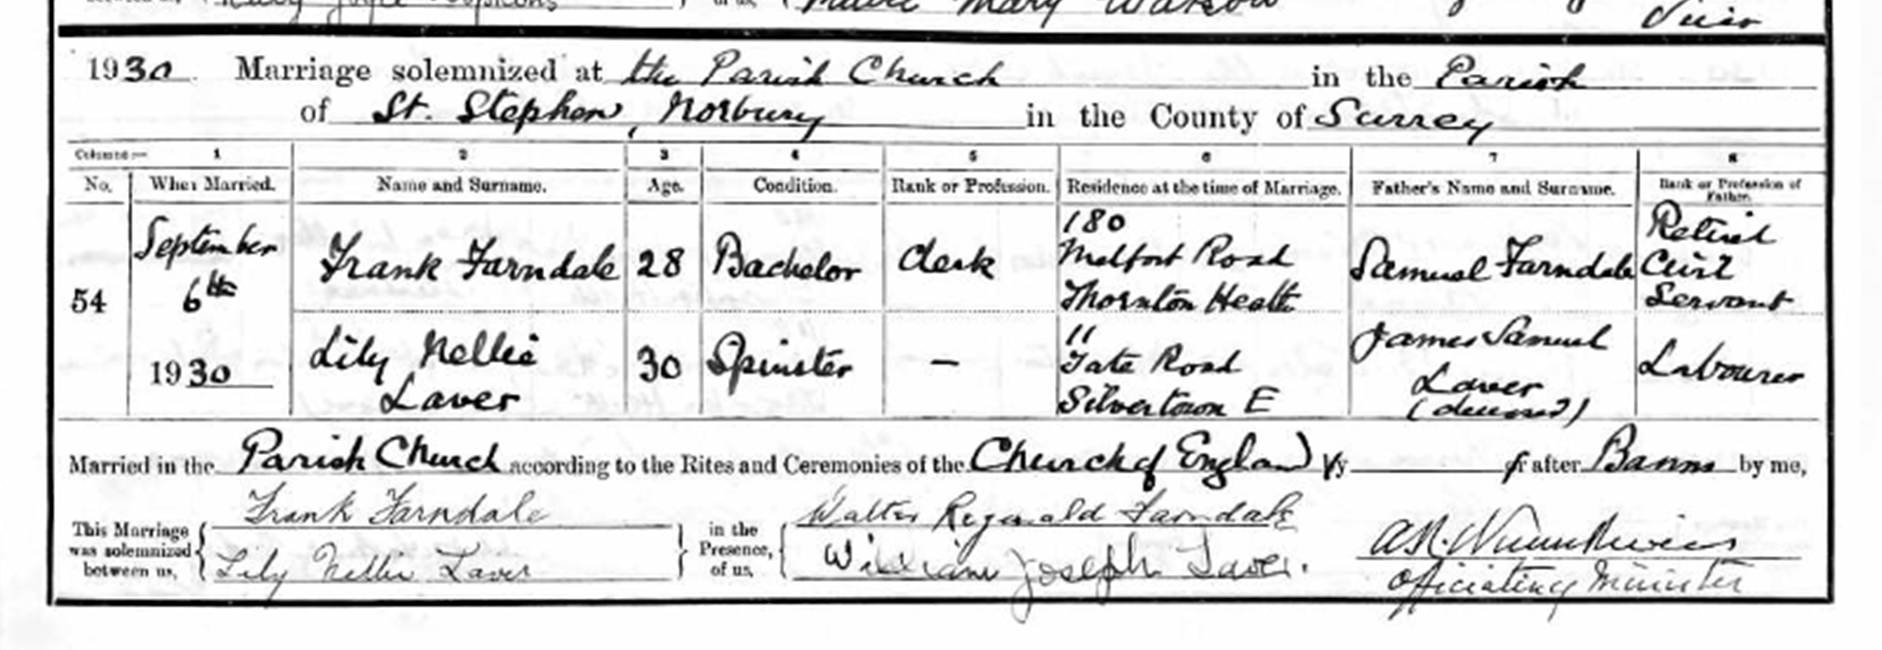 Mary Watson
Vicar
1930. Marriage solemnized at the Parish Church in the Parish
of St. Stephen, Norbury in the County of Surrey
Columns:— 1 2 3 4 5 6 7 8
No. When Married. Name and Surname. Age. Condition. Rank or Profession. Residence at the time of Marriage. Father's Name and Surname. Rank or Profession of Father.
54 September 6th 1930 Frank Farndale 28 Bachelor Clerk 180 Melfort Road Thornton Heath Samuel Farndale Retired Civil Servant
Lily Nellie Laver 30 Spinster — 11 Tate Road Silvertown E James Samuel Laver (deceased) Labourer
Married in the Parish Church according to the Rites and Ceremonies of the Church of England by or after Banns by me,
This Marriage was solemnized between us, Frank Farndale Lily Nellie Laver in the Presence, of us, Walter Reginald Farndale William Joseph Laver. Officiating Minister